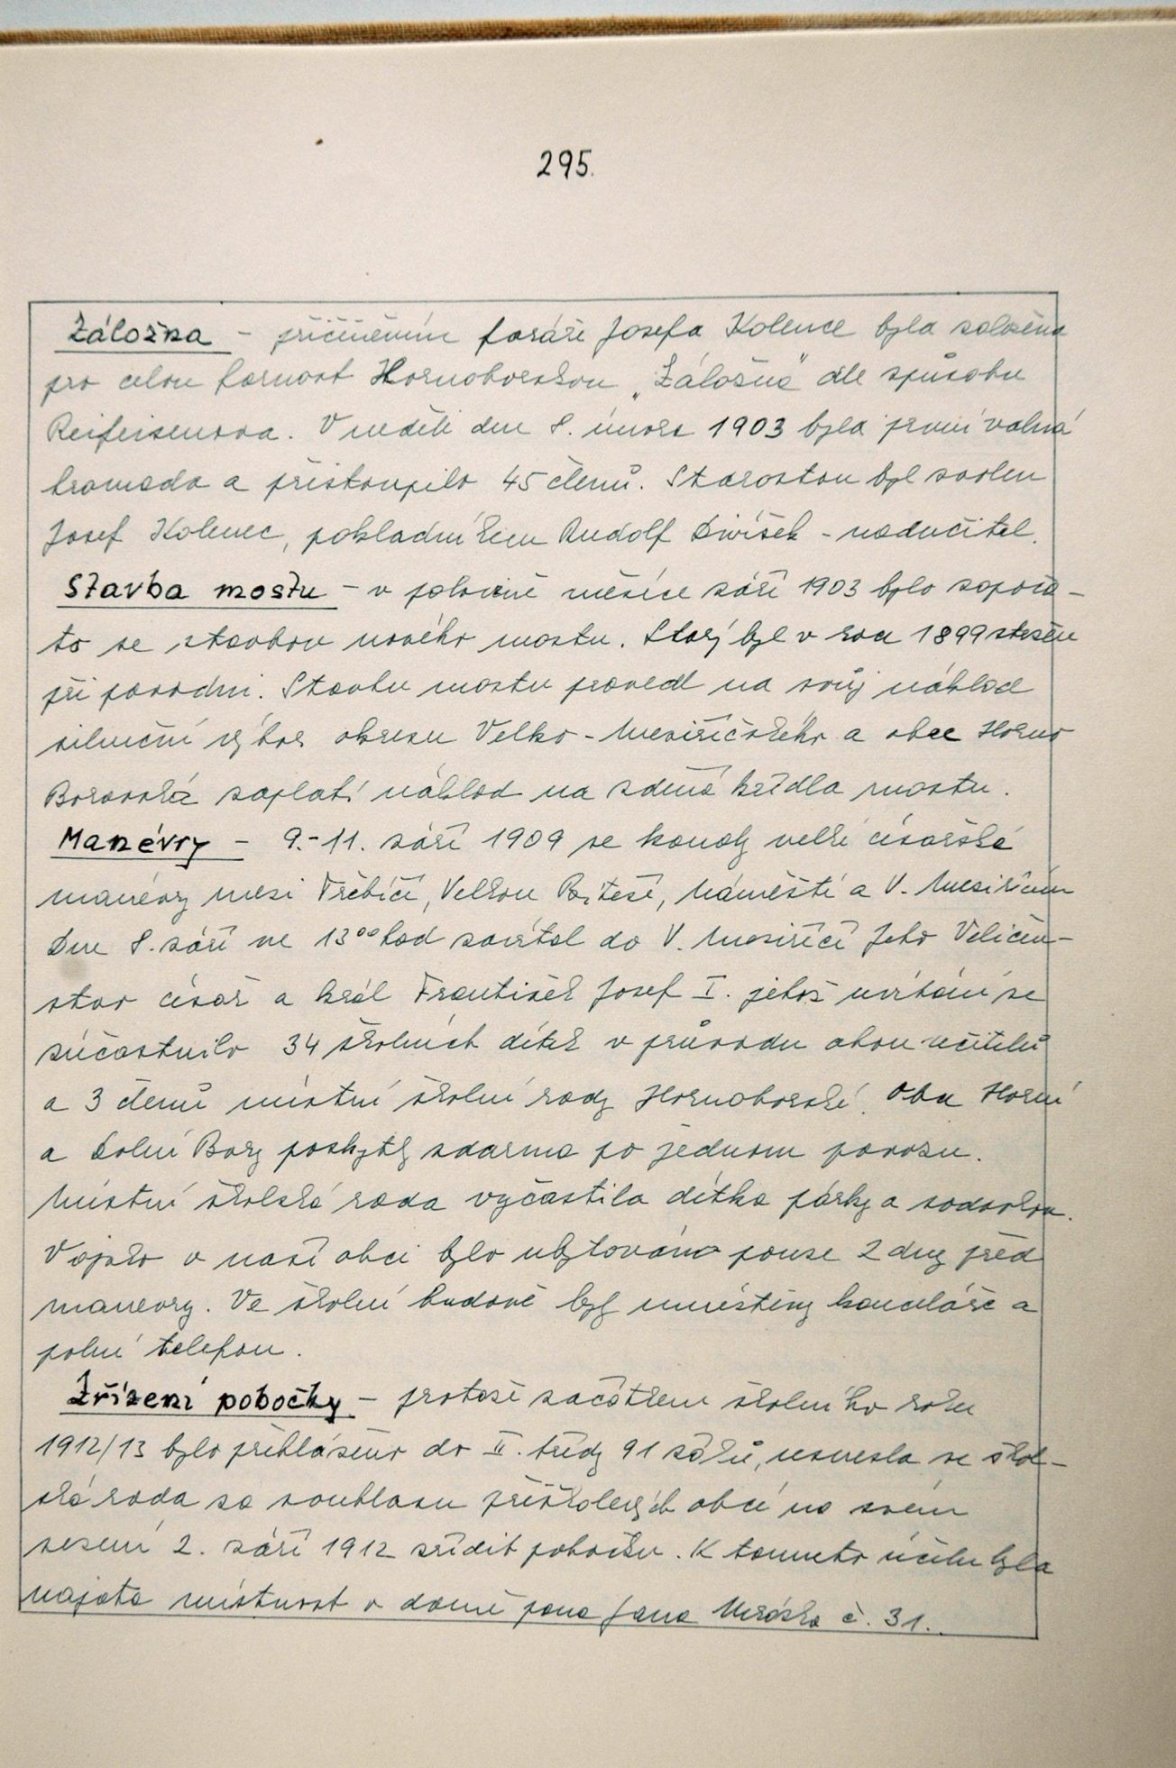 295.
Záložna - přičiněním faráře Josefa Kolence byla založena
pro celou farnost Hornoborskou „Záložna" dle způsobu
Reifeisenova. V neděli dne 8. února 1903 byla první valná
hromada a přistoupilo 45 členů. Starostou byl zvolen
Josef Kolenec, pokladníkem Rudolf Divíšek - nadučitel.
Stavba mostu - v polovině měsíce září 1903 bylo započa-
to se stavbou nového mostu. Starý byl v roce 1899 stržen
při povodni. Stavbu mostu provedl na svůj náklad
silniční výbor okresu Velko-Meziříčského a obec Horno
Borovská zaplatí náklad na zděná křídla mostu.
Manévry - 9.-11. září 1909 se konaly velké císařské
manévry mezi Třebíčí, Velkou Byteší, Náměští a V. Meziříčím
Dne 8. září ve 13⁰⁰ hod zavítal do V. Meziříčí Jeho Veličen-
stvo císař a král František Josef I. jehož uvítání se
súčastnilo 34 školních dítek v průvodu obou učitelů
a 3 členů místní školní rady Hornoborské. Obce Horní
a Dolní Bory poskytly zdarma po jednom povozu.
Místní školská rada vyčastila dítka párky a sodovkou.
Vojsko v naší obci bylo ubytováno pouze 2 dny před
manevry. Ve školní budově byly umístěny kanceláře a
polní telefon.
Zřízení pobočky - protože začátkem školního roku
1912/13 bylo přihlášeno do II. třídy 91 žáků, usnesla se škol-
ská rada za souhlasu přiškolených obcí na svém
sezení 2. září 1912 zřídit pobočku. K tomuto účelu byla
najata místnost v domě pana Jana Mrázka č. 31.